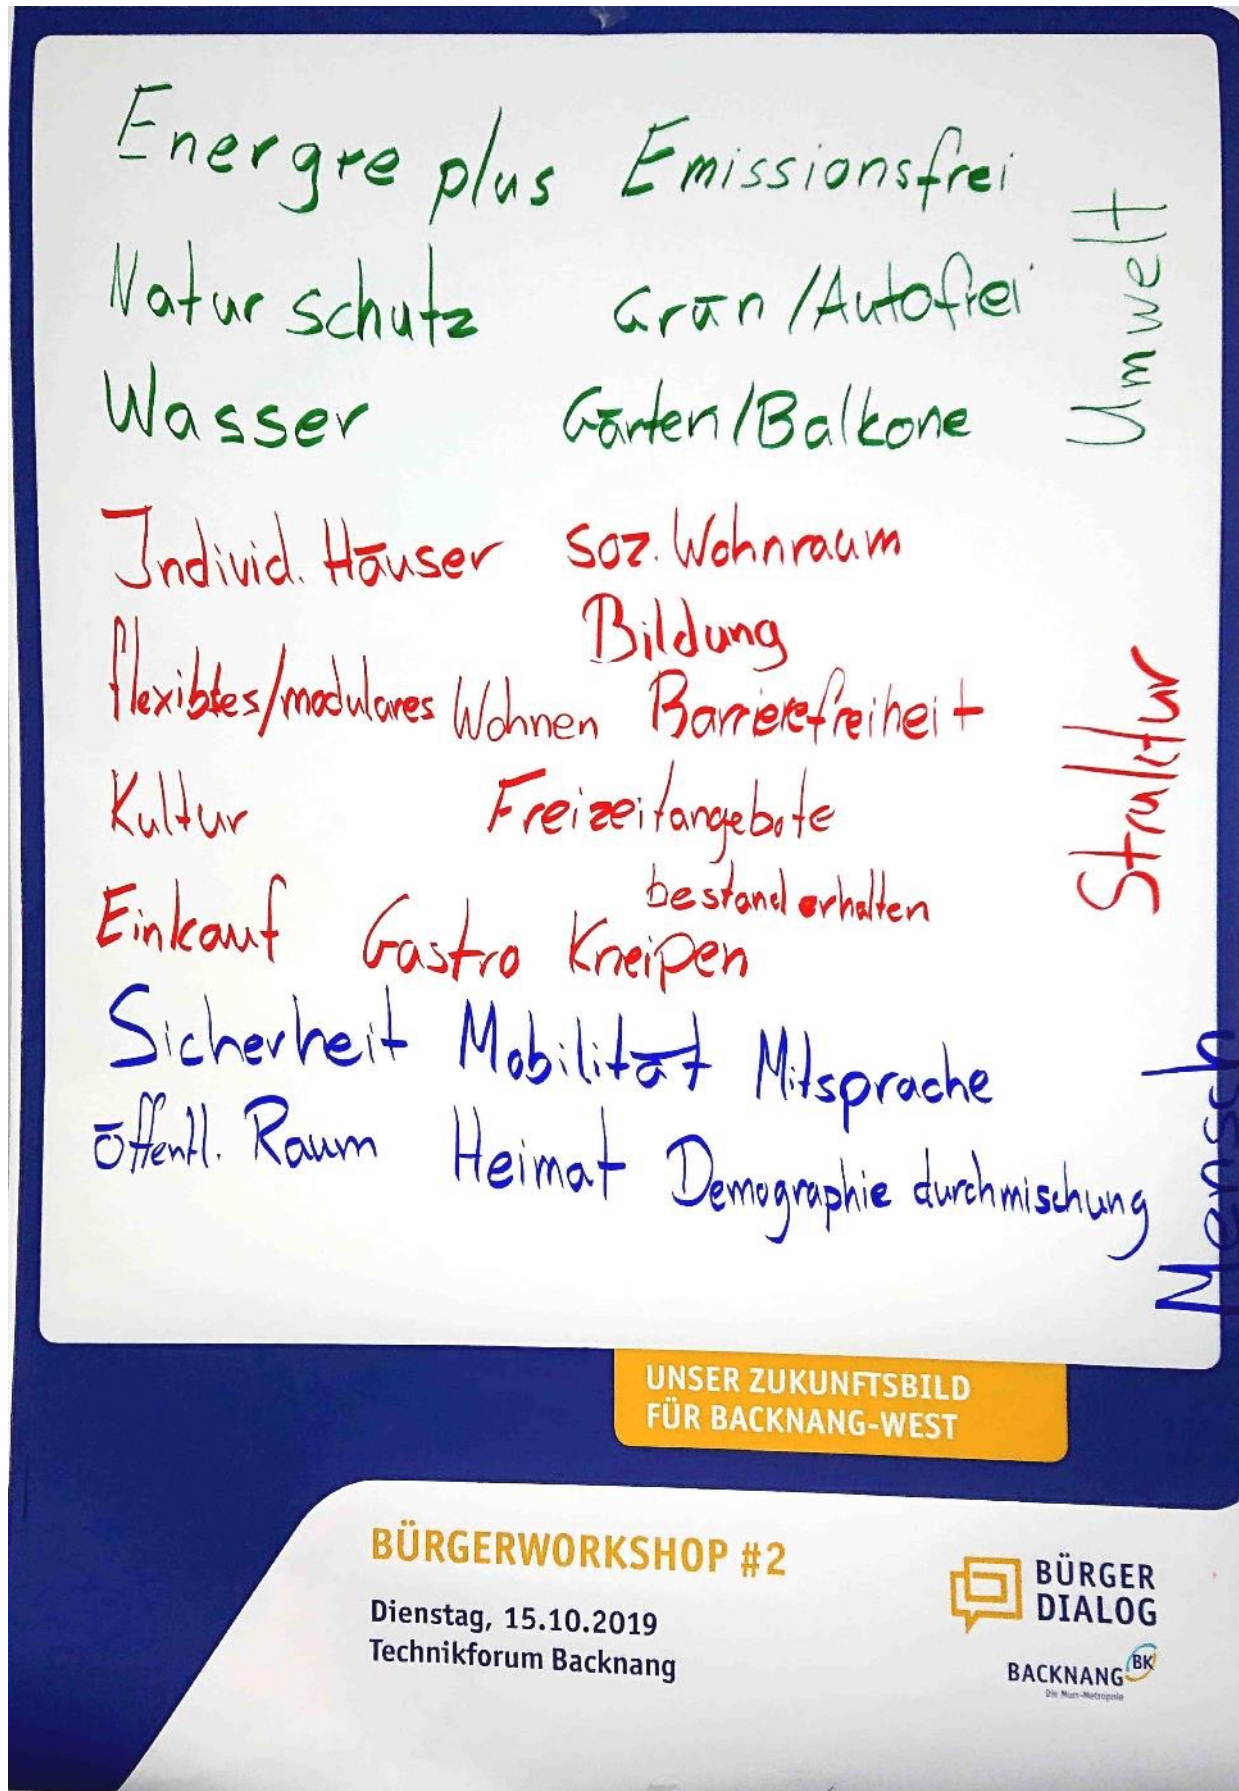 Energie plus Emissionsfrei
Naturschutz Grün/Autofrei
Wasser Gärten/Balkone
Umwelt
Individ. Häuser soz. Wohnraum
Bildung
flexibles/modulares Wohnen Barrierefreiheit
Kultur Freizeitangebote
bestand erhalten
Einkauf Gastro Kneipen
Struktur
Sicherheit Mobilität Mitsprache
öffentl. Raum Heimat Demographie durchmischung
Mensch
UNSER ZUKUNFTSBILD
FÜR BACKNANG-WEST
BÜRGERWORKSHOP #2
Dienstag, 15.10.2019
Technikforum Backnang
BÜRGER
DIALOG
BACKNANG BK
Die Murr-Metropole